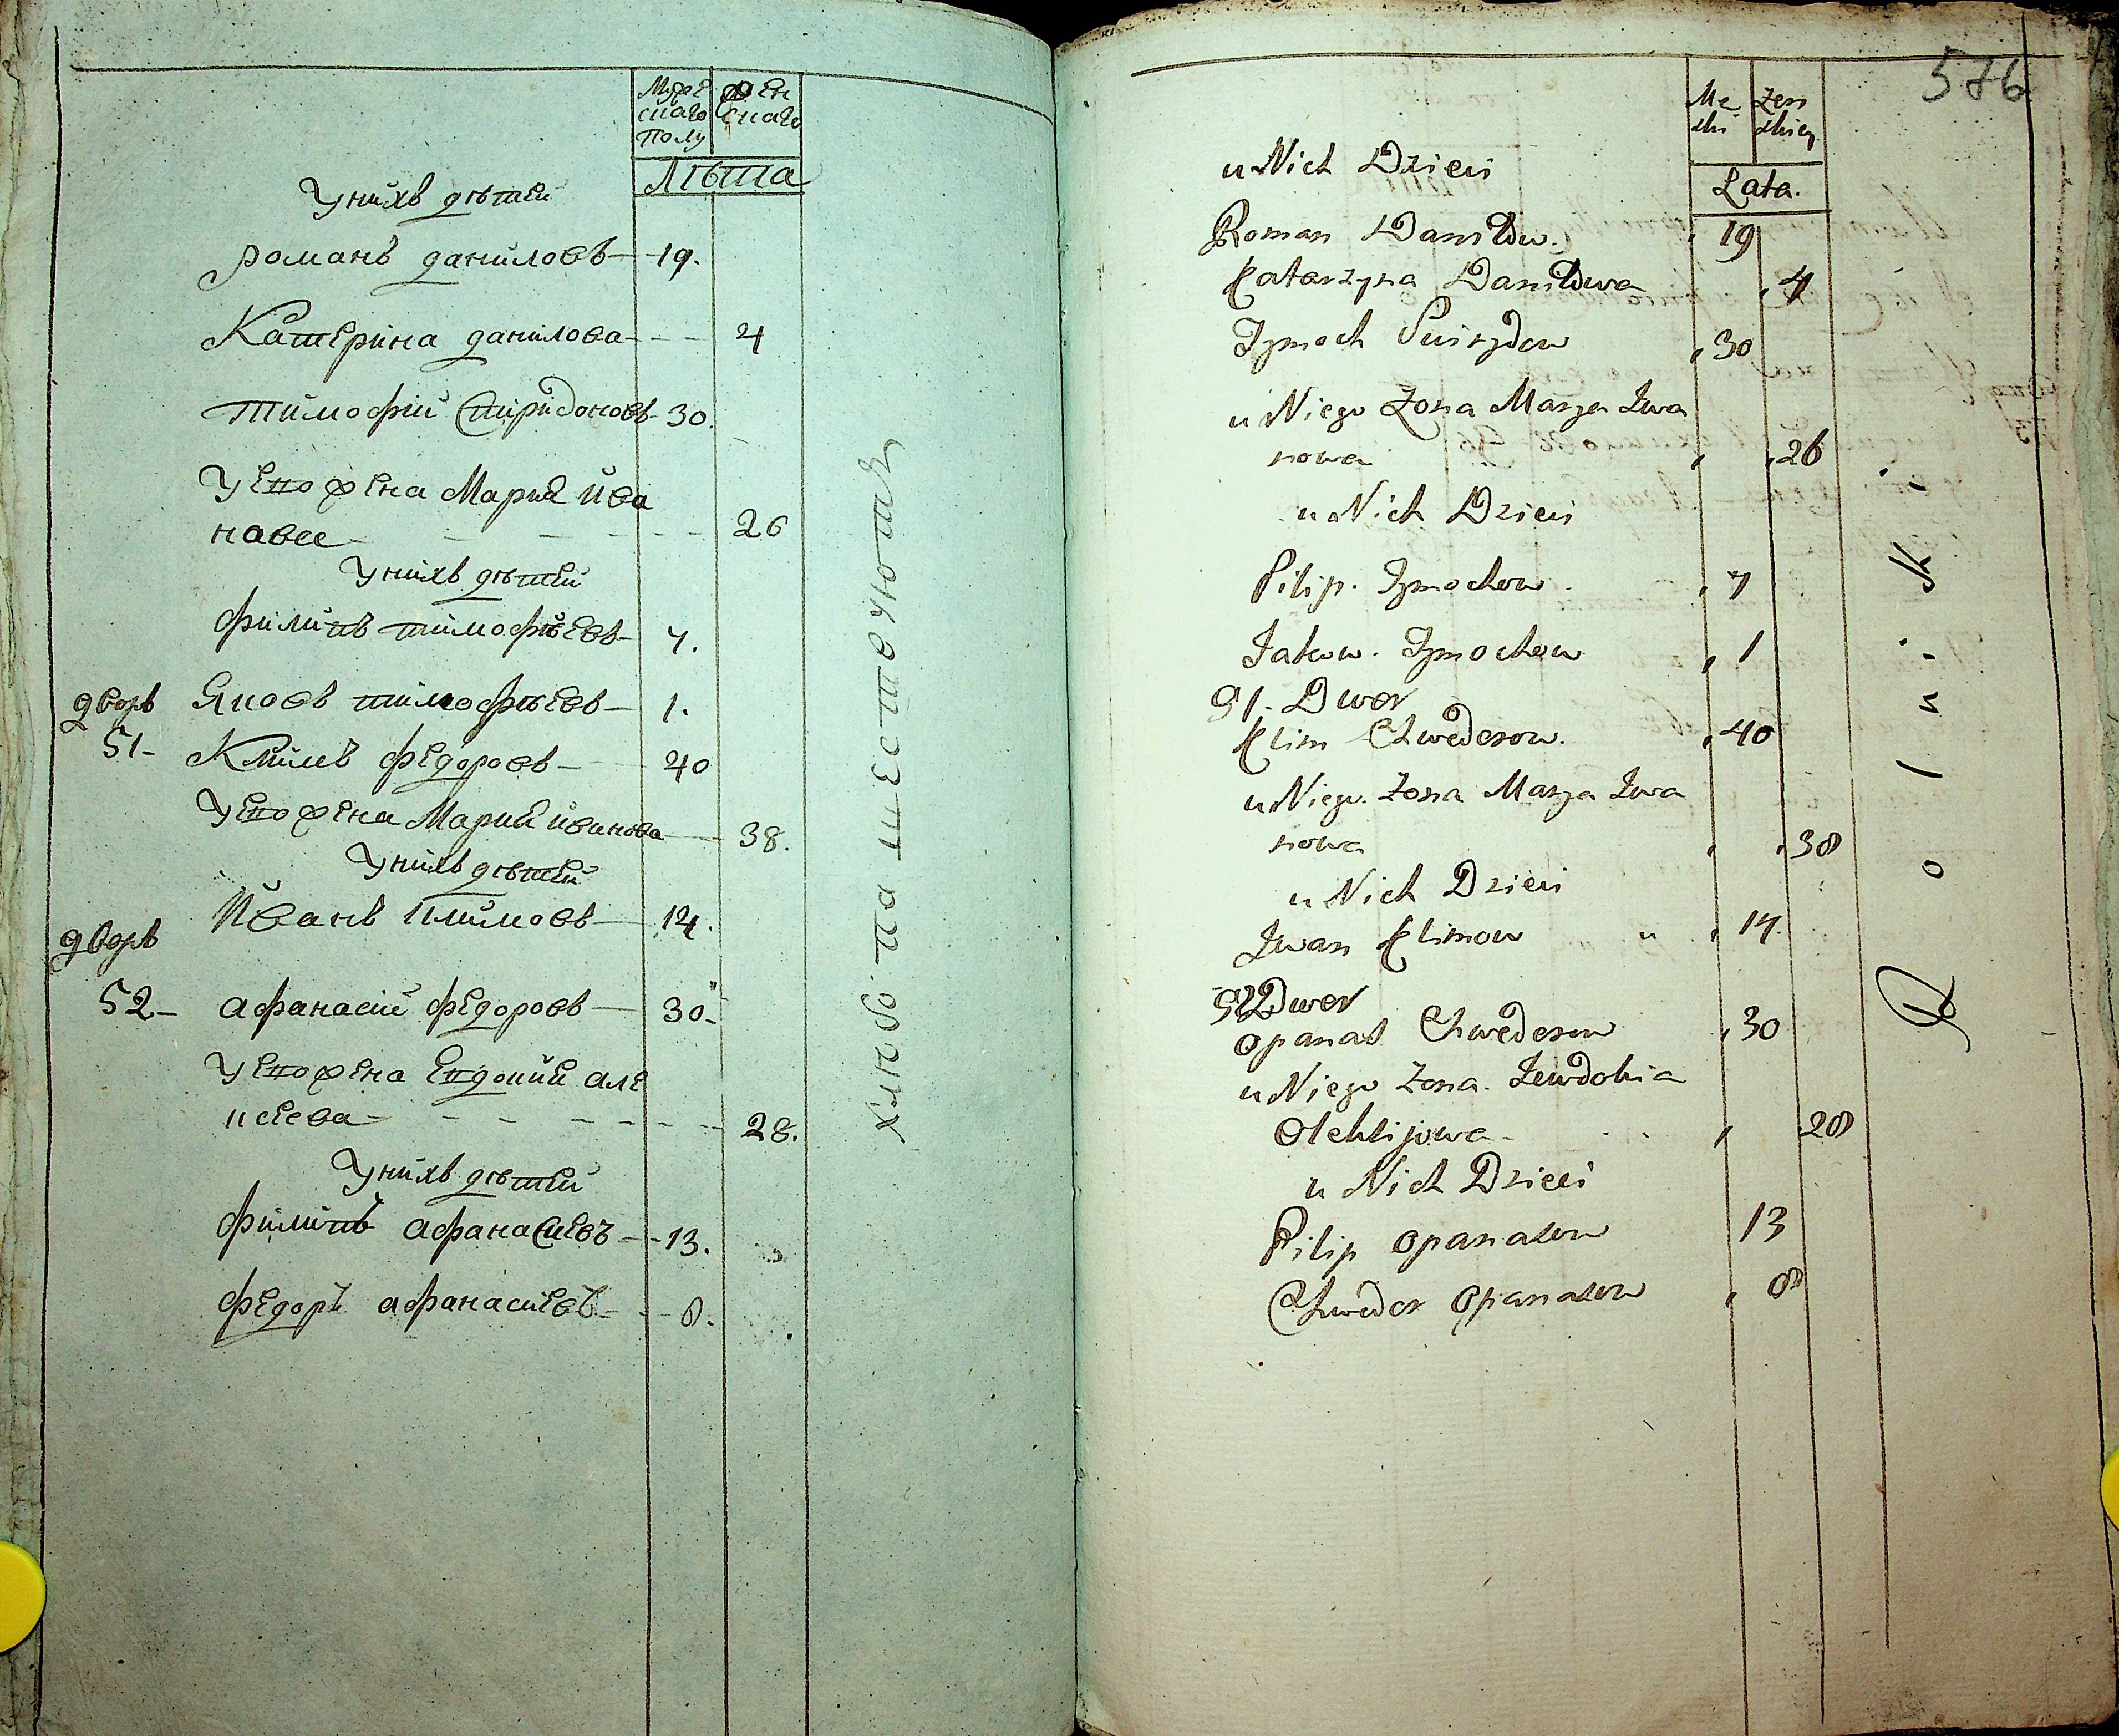 Мужескаго полу
Женскаго
Лѣта
У нихъ дѣтей
Романъ даниловъ 19.
Катерина данилова 4
Тимофій Спиридоновъ 30.
У его жена Мария Ива
навае 26
У нихъ дѣтей
Филипъ тимофѣевъ 7.
Яковъ тимофѣевъ 1.
дворъ
51 Климъ Федоровъ 40
У его жена Мария иванова 38.
У нихъ дѣтей
Иванъ Климовъ 14.
дворъ
52 Афанасій Федоровъ 30.
У его жена Евдокия але
ксеева 28.
У нихъ дѣтей
Филипъ Афанасиевъ 13.
Федоръ афанасиевъ 8.
хлѣбопашествуютъ
576
Mezki
Zenzkiey
Lata.
u Nich Dzieci
Roman Daniłow. 19
Katarzyna Daniłowa 4
Tymoch Swirydow 30
u Niego Zona Marya Iwa
nowa 26
u Nich Dzieci
Pilip. Tymochow. 7
Jakow. Tymochow 1
51. Dwor
Klim Chwedorow. 40
u Niego. Zona Marya Iwa
nowa 38
u Nich Dzieci
Iwan Klimow 14
52 Dwor
Opanas Chwedorow 30
u Niego Zona. Jewdokia
Oleksijowa 28
u Nich Dzieci
Pilip Opanasow 13
Chwedor Opanasow 8
Rolniki